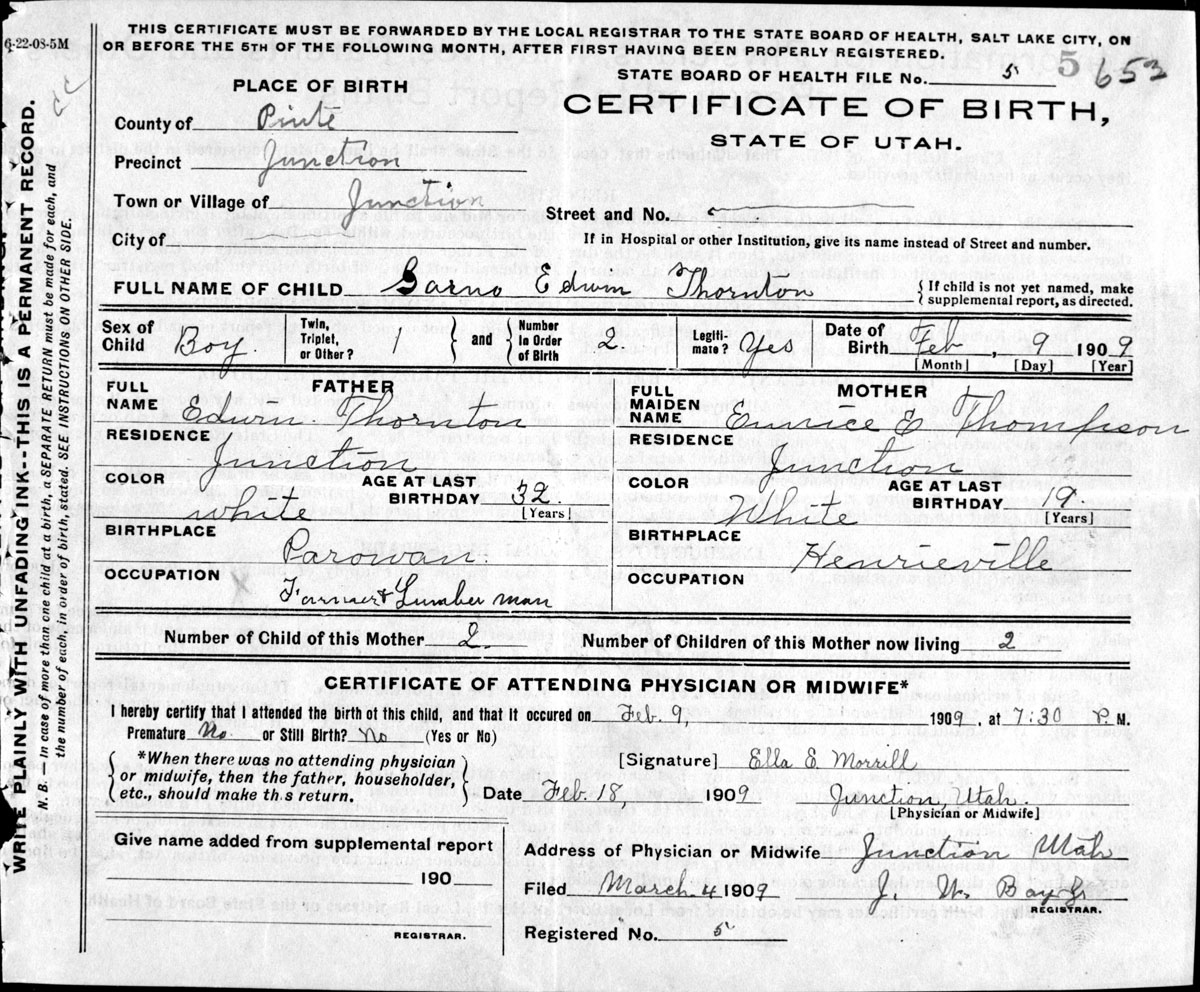 6-22-08-5M
THIS CERTIFICATE MUST BE FORWARDED BY THE LOCAL REGISTRAR TO THE STATE BOARD OF HEALTH, SALT LAKE CITY, ON
OR BEFORE THE 5TH OF THE FOLLOWING MONTH, AFTER FIRST HAVING BEEN PROPERLY REGISTERED.
STATE BOARD OF HEALTH FILE No. 5 5 653
PLACE OF BIRTH
CERTIFICATE OF BIRTH,
STATE OF UTAH.
County of Piute
Precinct Junction
Town or Village of Junction
Street and No.
City of
If in Hospital or other Institution, give its name instead of Street and number.
FULL NAME OF CHILD Barno Edwin Thornton
{ If child is not yet named, make
supplemental report, as directed.
Sex of Child Boy. Twin, Triplet, or Other? 1 } and { Number In Order of Birth 2. Legiti-mate? Yes Date of Birth Feb, 9 1909
[Month] [Day] [Year]
FATHER
FULL NAME Edwin Thornton
RESIDENCE Junction
COLOR white AGE AT LAST BIRTHDAY 32 [Years]
BIRTHPLACE Parowan.
OCCUPATION Farmer & Lumber man
MOTHER
FULL MAIDEN NAME Eunice E Thompson
RESIDENCE Junction
COLOR White AGE AT LAST BIRTHDAY 19. [Years]
BIRTHPLACE Henrieville
OCCUPATION
Number of Child of this Mother 2. Number of Children of this Mother now living 2
CERTIFICATE OF ATTENDING PHYSICIAN OR MIDWIFE*
I hereby certify that I attended the birth of this child, and that it occured on Feb. 9, 1909, at 7:30 P. M.
Premature No. or Still Birth? No (Yes or No)
{ *When there was no attending physician
or midwife, then the father, householder,
etc., should make th.s return. }
[Signature] Ella E. Morrill
Date Feb. 18, 1909 Junction, Utah.
[Physician or Midwife]
Give name added from supplemental report
190
REGISTRAR.
Address of Physician or Midwife Junction Utah
Filed March 4 1909 J. W.
REGISTRAR.
Registered No. 5
WRITE PLAINLY WITH UNFADING INK--THIS IS A PERMANENT RECORD.
N. B. — In case of more than one child at a birth, a SEPARATE RETURN must be made for each, and
the number of each, in order of birth, stated. SEE INSTRUCTIONS ON OTHER SIDE.